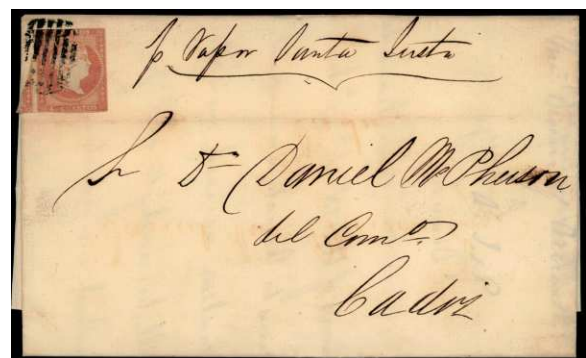 p Vapor Santa Justa
Sr Dn Daniel McPherson
del Como
Cadiz